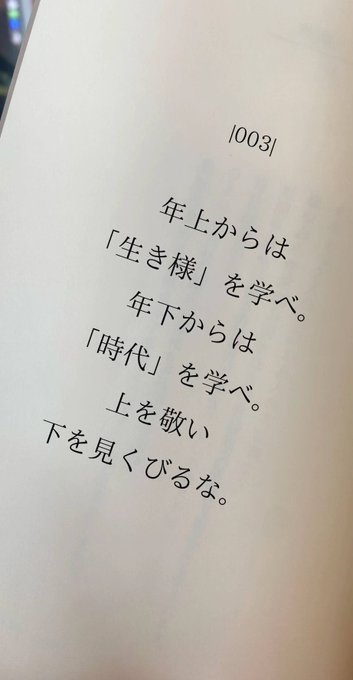 |003|
年上からは
「生き様」を学べ。
年下からは
「時代」を学べ。
上を敬い
下を見くびるな。